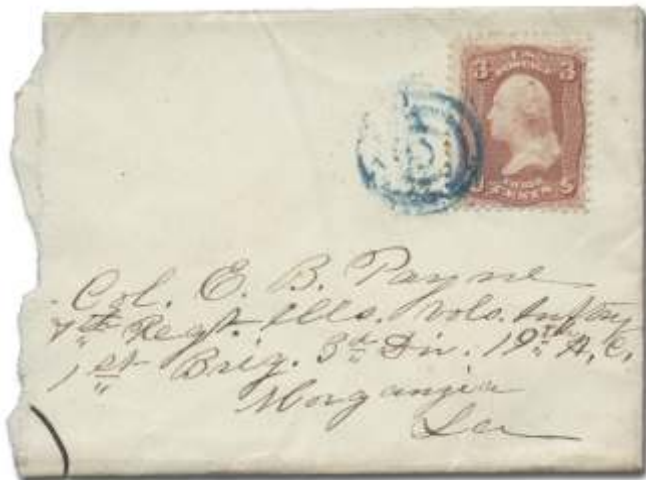 U.S. POSTAGE
3 3
THREE
CENTS
Col. E. B. Payne
7th Regt. Ills. Vols. Inftry
1st Brig. 3d Div. 19th A. C.
Morganzia
La